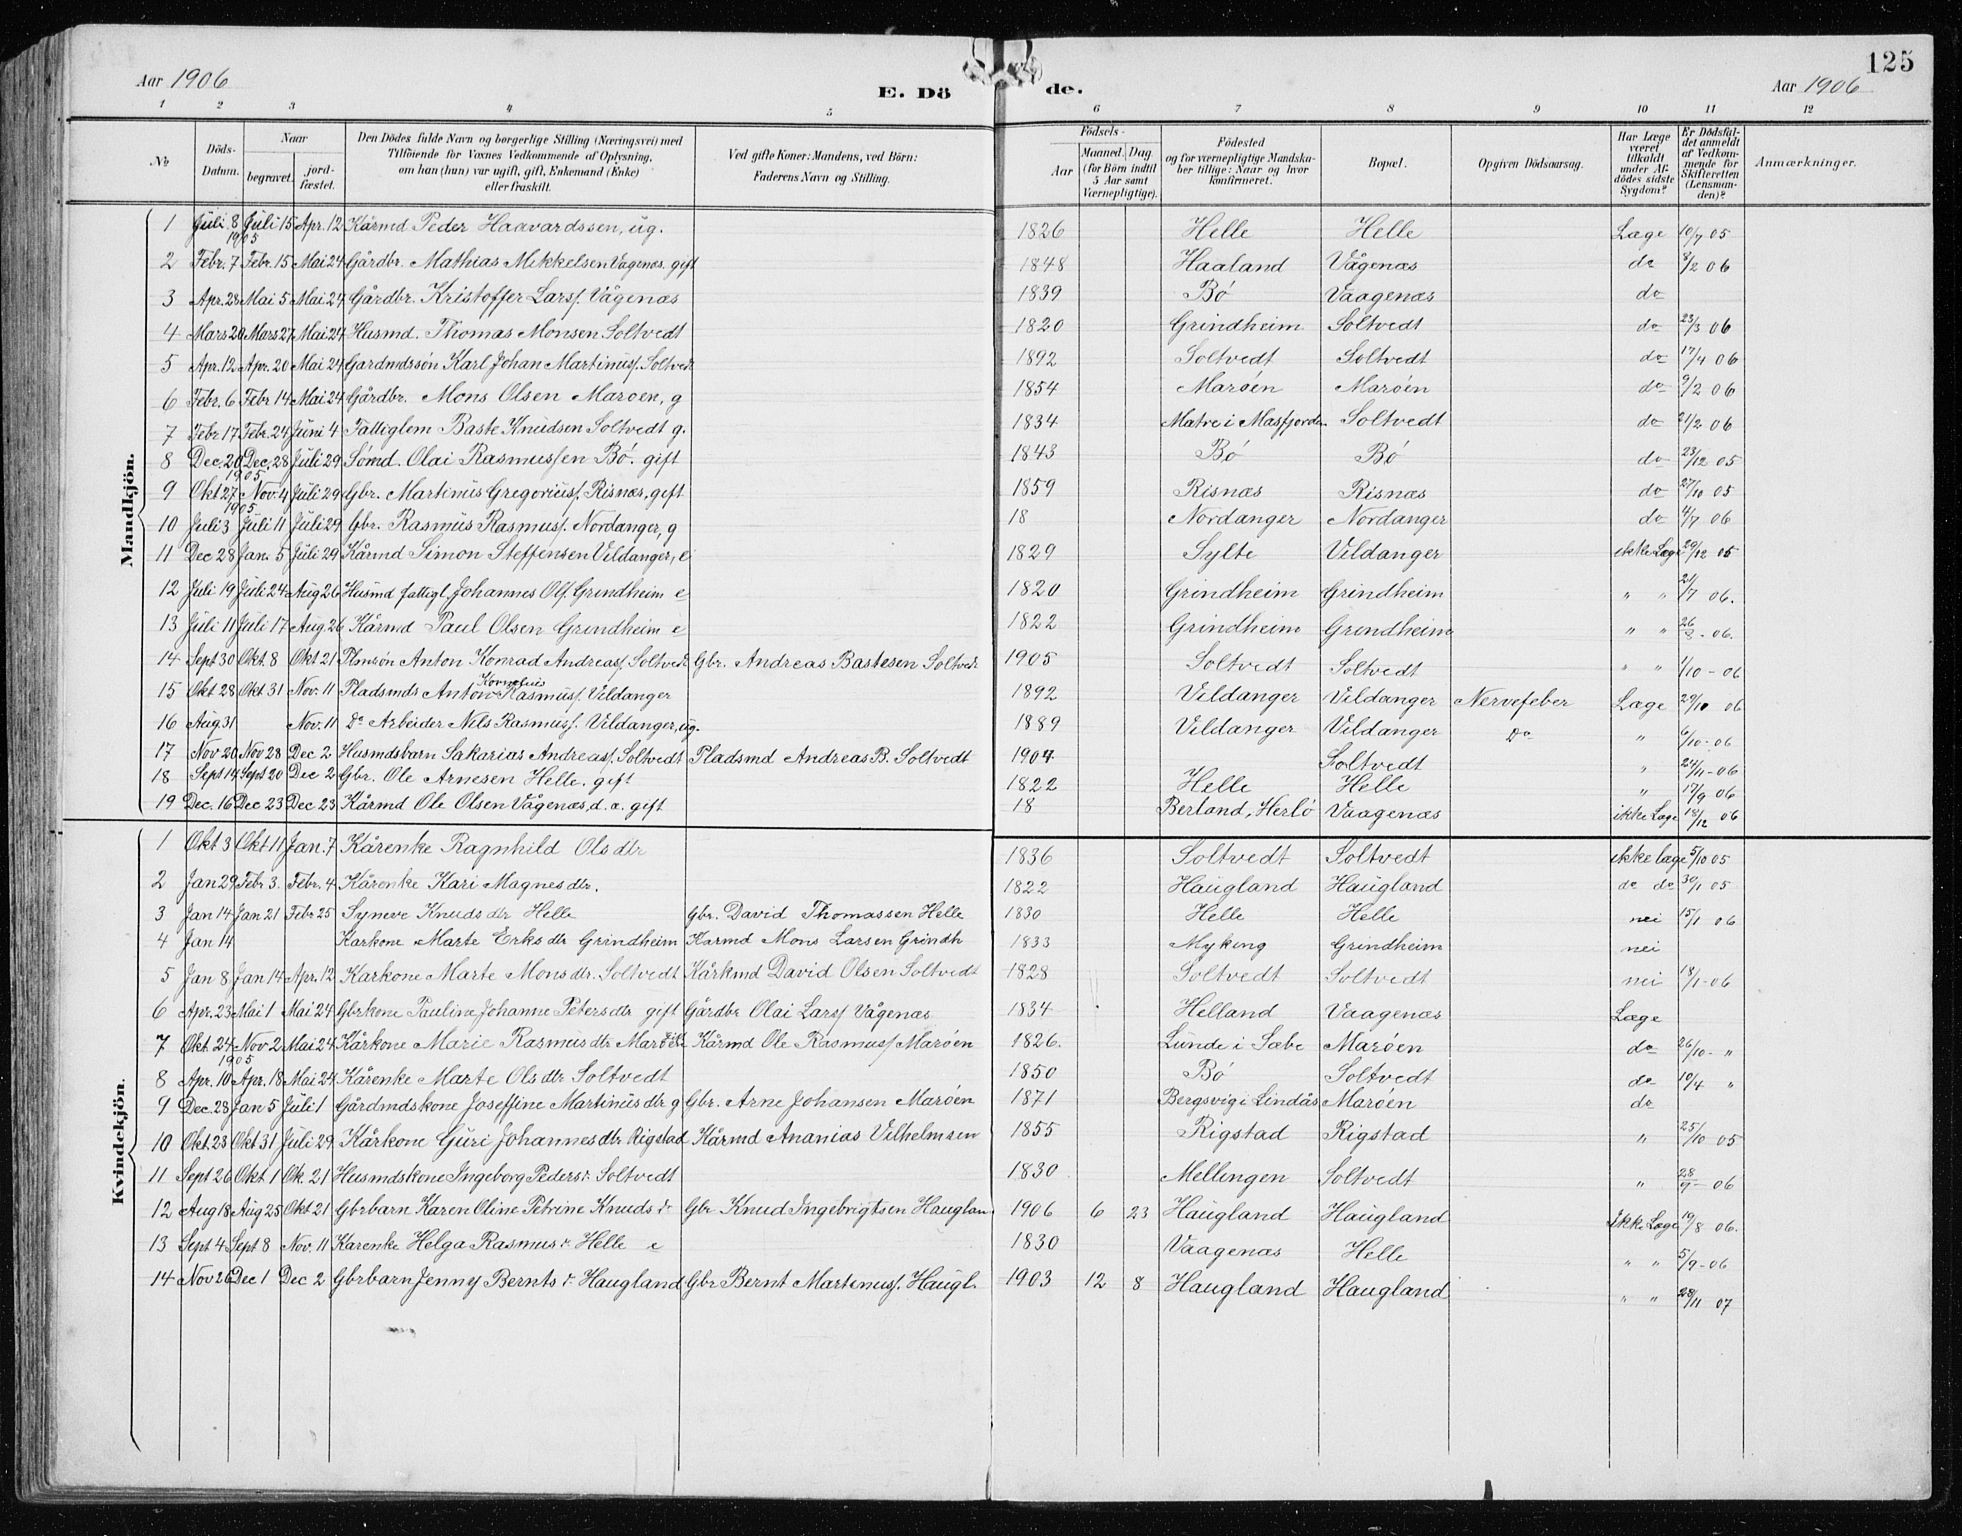 125
Aar 1906 E. Döde. Aar 1906
1 2 3 4 5 6 7 8 9 10 11 12
No | Döds-Datum. | Naar begravet. | jordfæstet. | Den Dödes fulde Navn og borgerlige Stilling (Næringsvei) med Tilföiende for Voxnes Vedkommende af Oplysning, om han (hun) var ugift, gift, Enkemand (Enke) eller fraskilt. | Ved gifte Koner: Mandens, ved Börn: Faderens Navn og Stilling. | Födsels- Aar | Maaned. Dag (for Börn indtil 5 Aar samt Værnepligtige). | Födested og for værnepligtige Mandskaber tillige: Naar og hvor konfirmeret. | Bopæl. | Opgiven Dödsaarsag. | Har Læge været tilkaldt under Afdödes sidste Sygdom? | Er Dödsfaldet anmeldt af Vedkommende for Skifteretten (Lensmanden)? | Anmærkninger.
Mandkjön.
1 Juli 8 1905 Juli 15 Apr. 12 Kårmd Peder Haavardssen, ug. 1826 Helle Helle Læge 10/7 05
2 Febr. 7 Febr. 15 Mai 24 Gårdbr. Mathias Mikkelsen Vågenæs, gift 1848 Haaland Vågenæs do 8/2 06
3 Apr. 28 Mai 5 Mai 24 Gårdbr. Kristoffer Larss. Vågenæs 1839 Bö Vaagenæs do
4 Mars 20 Mars 27 Mai 24 Husmd. Thomas Monsen Soltvedt 1820 Grindheim Soltvedt do 23/3 06
5 Apr. 12 Apr. 20 Mai 24 Gardmdssön Karl Johan Martinuss. Soltvedt 1892 Soltvedt Soltvedt do 17/4 06
6 Febr. 6 Febr 14 Mai 24 Gårdbr. Mons Olsen Maröen, g 1854 Maröen Maröen do 9/2 06
7 Febr 17 Febr. 24 Juni 4 Fattiglem Baste Knudsen Soltvedt g. 1834 Matre i Masfjorden Soltvedt do 21/2 06
8 Dec. 20 1905 Dec. 28 Juli 29 Sömd. Olai Rasmussen Bö. gift 1843 Bö Bö do 23/12 05
9 Okt 27 1905 Nov. 4 Juli 29 Gbr. Martinus Gregoriuss. Risnæs, gift 1859 Risnæs Risnæs do 27/10 05
10 Juli 3 Juli 11 Juli 29 Gbr. Rasmus Rasmuss. Nordanger, g 18 Nordanger Nordanger do 4/7 06
11 Dec 28 Jan. 5 Juli 29 Kårmd Simon Steffensen Vildanger, e 1829 Sylte Vildanger ikke Læge 29/12 05
12 Juli 19 Juli 24 Aug 26 Husmd fattigl. Johannes Ols. Grindheim e 1820 Grindheim Grindheim " " 21/7 06.
13 Juli 11 Juli 17 Aug. 26 Kårmd Paul Olsen Grindheim e 1822 Grindheim Grindheim " " 26/8 - 06.
14 Sept 30 Okt. 8 Okt 21 Plmsön Anton Konrad Andreass. Soltvedt Gbr. Andreas Bastesen Soltvedt 1905 Soltvedt Soltvedt " " 1/10 - 06
15 Okt 28 Okt 31 Nov. 11 Pladsmds Anton Kornelius Rasmuss. Vildanger 1892 Vildanger Vildanger Nervefeber Læge 29/10 06
16 Aug 31 Nov. 11 Do Arbeider Nils Rasmuss. Vildanger, ug. 1889 Vildanger Vildanger Do " 6/10 - 06
17 Nov 20 Nov 28 Dec 2 Husmdsbarn Sakarias Andreass. Soltvedt Pladsmd Andreas B. Soltvedt 1904 Soltvedt " 24/11 - 06
18 Sept 14 Sept 20 Dec 2 Gbr. Ole Arnesen Helle. gift 1822 Helle Helle " 17/9 06
19 Dec. 16 Dec 23 Dec 23 Kårmd Ole Olsen Vågenæs, d. æ. gift 18 Berland, Herlö Vaagenæs ikke Læge 18/12 06
Kvindekjön.
1 Okt 3 Okt 11 Jan. 7 Kårenke Ragnhild Olsdtr 1836 Soltvedt Soltvedt ikke læge 5/10 05
2 Jan 29 Febr 3. Febr. 4 Kårenke Kari Magnesdtr. 1822 Haugland Haugland do do 30/1 05
3 Jan 14 Jan 21 Febr 25 Syneve Knudsdtr Helle Gbr. David Thomassen Helle 1830 Helle Helle nei 15/1 06
4 Jan 14 Karkone Marte Eriksdtr Grindheim Karmd Mons Larsen Grindh 1833 Myking Grindheim nei
5 Jan 8 Jan 14 Apr. 12 Karkone Marte Monsdtr. Soltvedt Kårkmd David Olsen Soltvedt 1828 Soltvedt Soltvedt nei 18/1 - 06
6 Apr. 23 Mai 1 Mai 24 Gbrkone Pauline Johanne Petersdtr gift Gårdbr Olai Larss Vågenæs 1834 Helland Vaagenæs Læge
7 Okt. 24 1905 Nov 2 Mai 24 Kårkone Marie Rasmusdtr Marö Kårmd Ole Rasmuss Maröen 1826. Lunde i Sæbe Maröen do 26/10 - "
8 Apr. 10 Apr. 18 Mai 24 Kårenke Marte Olsdtr Soltvedt 1850 Bö Soltvedt do 10/4 "
9 Dec. 28 Jan 5 Juli 1 Gårdmdskone Joseffine Martinusdtr g Gbr. Arne Johansen Maröen 1871 Bergsvig i Lindås Maröen do
10 Okt. 23 Okt 31 Juli 29 Kårkone Guri Johannesdtr Rigstad Kårmd Ananias Vilhelmsen 1855 Rigstad Rigstad " 25/10 05
11 Sept 26 Okt 1 Ok. 21 Husmdskone Ingeborg Pedersdr Soltvedt 1830 Mellingen Soltvedt " 28/9 - 06
12 Aug 18 Aug 25 Okt 21 Gbrbarn Karen Oline Petrine Knudsdr Gbr Knud Ingebrigtsen Hauglan 1906 6 23 Haugland Haugland Ikke Læge 19/8 06.
13 Sept 4 Sept 8 Nov. 11 Karenke Helga Rasmusdr Helle e 1830 Vaagenæs Helle " " 5/9 - 06
14 Nov 26 Dec 1 Dec 2 Gbrbarn Jenny Berntsdr Haugland Gbr Bernt Martinuss. Haugl. 1903 12 8 Haugland Haugland " " 28/11 07